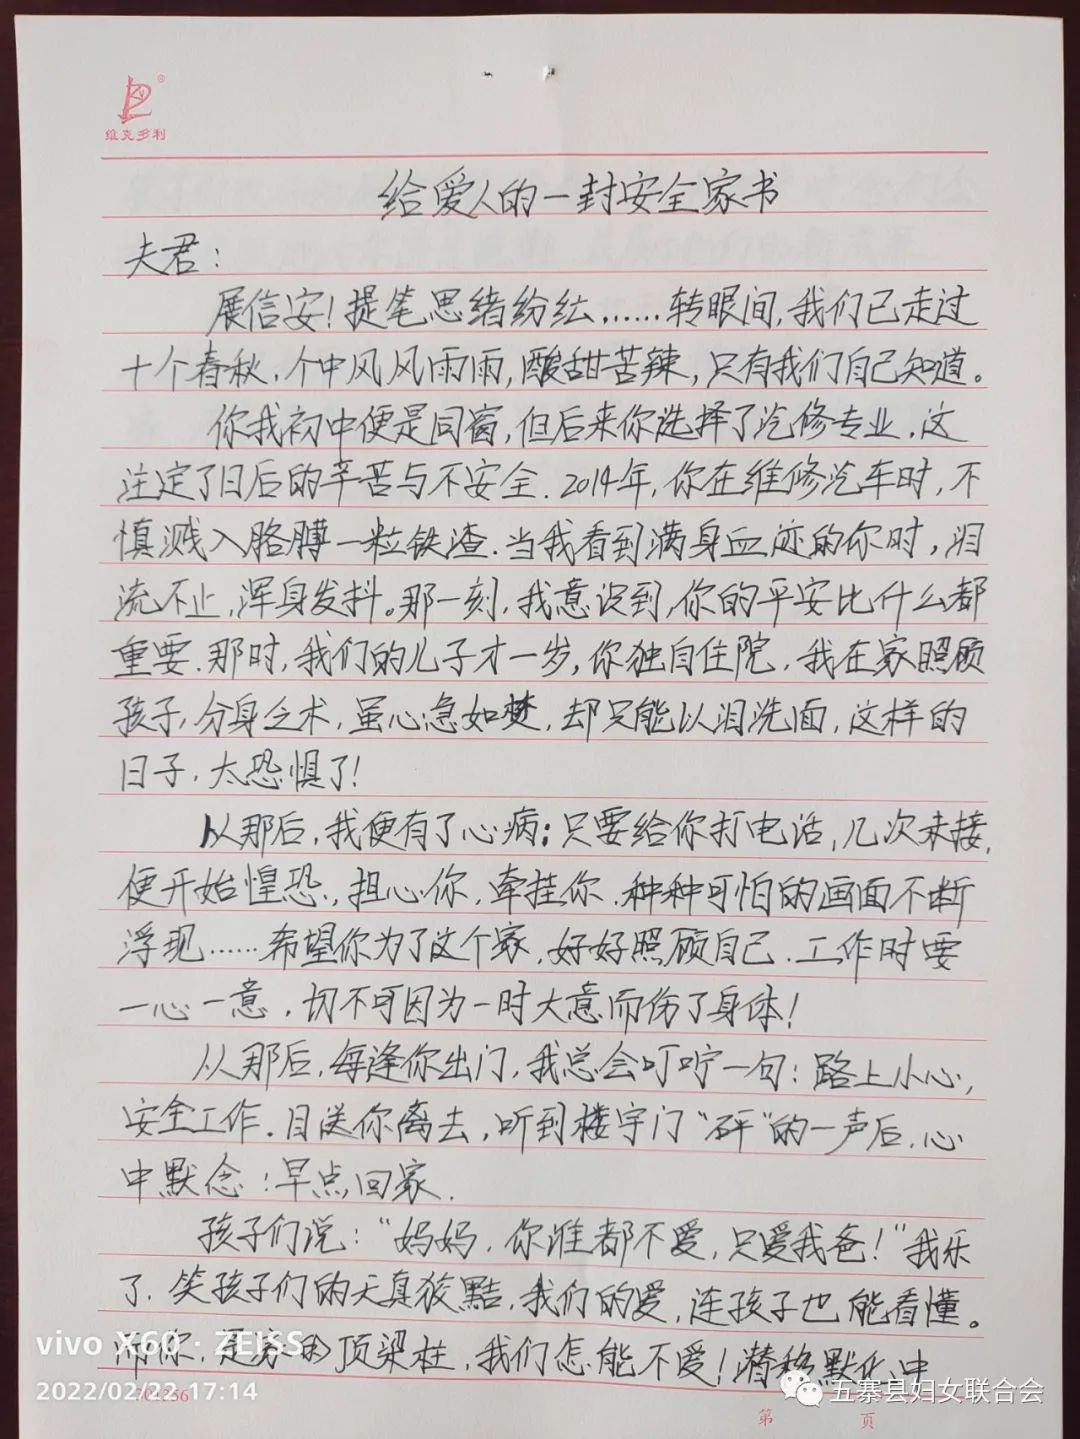 维克多利
给爱人的一封安全家书
夫君：
展信安！提笔思绪纷纭……转眼间，我们已走过
十个春秋，个中风风雨雨，酸甜苦辣，只有我们自己知道。
你我初中便是同窗，但后来你选择了汽修专业，这
注定了日后的辛苦与不安全．2014年，你在维修汽车时，不
慎溅入胳膊一粒铁渣．当我看到满身血迹的你时，泪
流不止，浑身发抖。那一刻，我意识到，你的平安比什么都
重要．那时，我们的儿子才一岁，你独自住院，我在家照顾
孩子，分身乏术，虽心急如焚，却只能以泪洗面，这样的
日子，太恐惧了！
从那后，我便有了心病：只要给你打电话，几次未接，
便开始惶恐，担心你，牵挂你．种种可怕的画面不断
浮现……希望你为了这个家，好好照顾自己．工作时要
一心一意，切不可因为一时大意而伤了身体！
从那后，每逢你出门，我总会叮咛一句：路上小心，
安全工作．目送你离去，听到楼宇门“砰”的一声后，心
中默念：早点回家．
孩子们说：“妈妈，你谁都不爱，只爱我爸！”我乐
了．笑孩子们的天真狡黠，我们的爱，连孩子也能看懂。
而你，是家的顶梁柱，我们怎能不爱！潜移默化中
vivo X60 · ZEISS
2022/02/22 17:14
五寨县妇女联合会
第 页